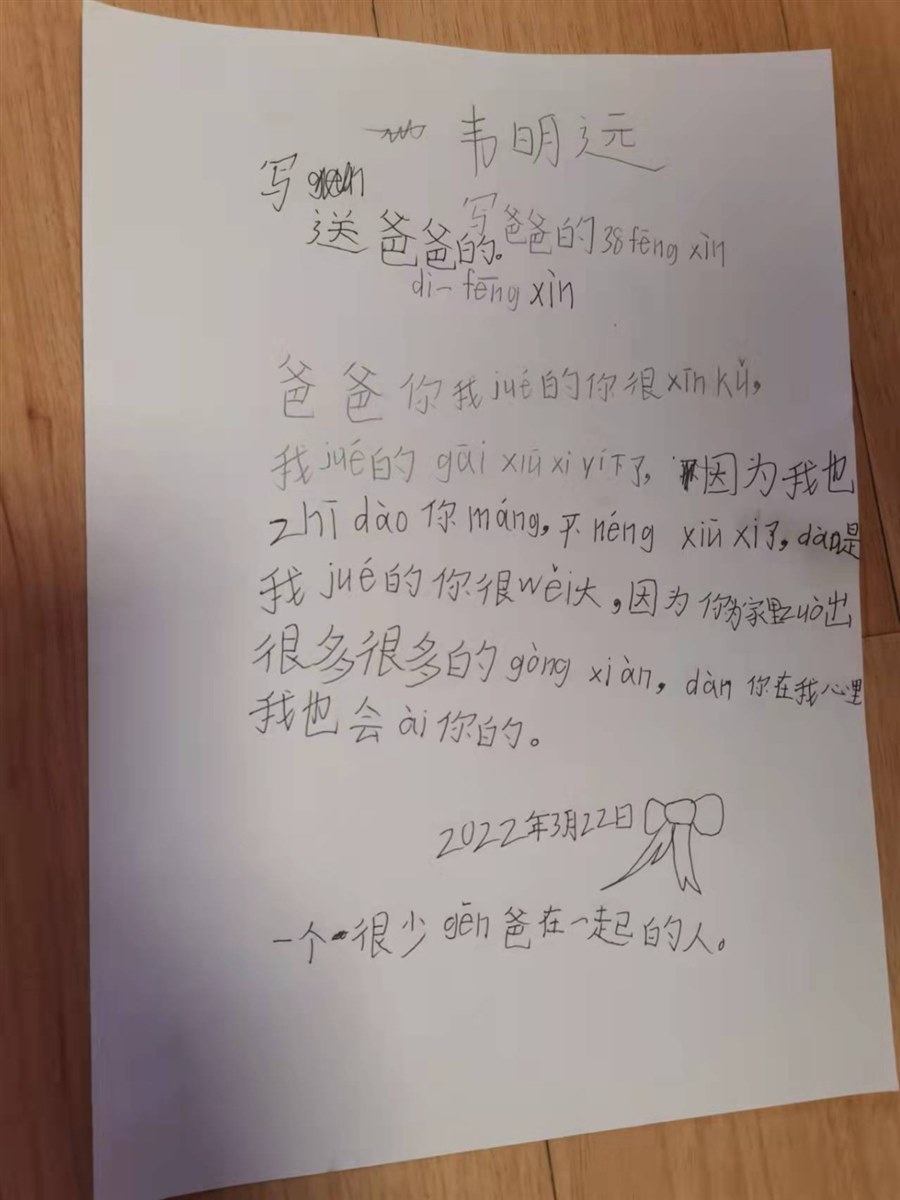 韦明远
写
写爸爸的38fēng xìn
送爸爸的。
dì一fēng xìn
爸爸你我jué的你很xīn kǔ,
我jué的 gāi xiū xi yí下了, 因为我也
zhī dào 你 máng, 不 néng xiū xi了, dàn是
我 jué 的你很wěi大,因为你为家里zuò出
很多很多的 gòng xiàn, dàn 你在我心里
我也会 ài 你的。
2022年3月22日
一个很少 gēn 爸在一起的人。